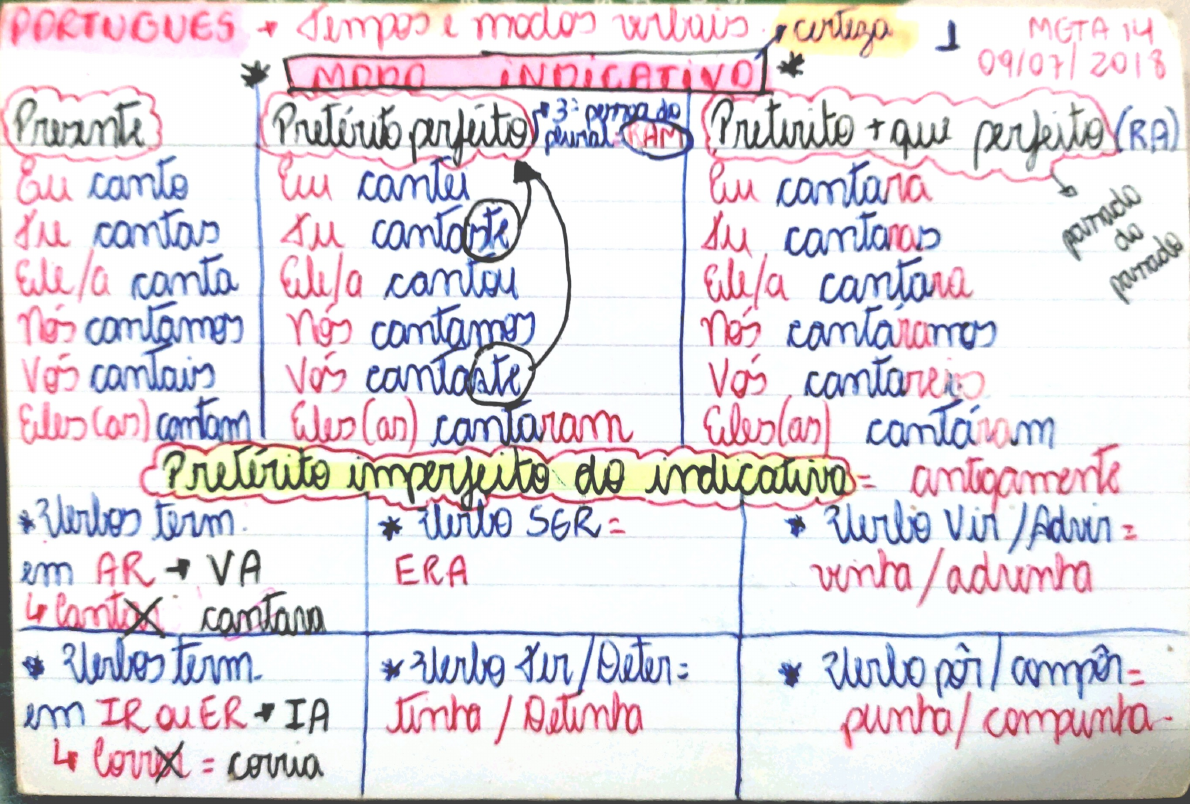 PORTUGUÊS → Tempos e modos verbais. → certeza 1 META 14
09/07/2018
* MODO INDICATIVO *
Presente
Eu canto
Tu cantas
Ele/a canta
Nós cantamos
Vós cantais
Eles(as) cantam
Pretérito perfeito → 3ª pessoa do
plural RAM
Eu cantei
Tu cantaste
Ele/a cantou
Nós cantamos
Vós cantaste
Eles(as) cantaram
Pretérito + que perfeito (RA)
passado
do
passado
Eu cantara
Tu cantaras
Ele/a cantara
Nós cantáramos
Vós cantareis
Eles(as) cantáram
Pretérito imperfeito do indicativo = antigamente
* Verbos term.
em AR → VA
↳ Cantar cantava
* Verbo SER =
ERA
* Verbo Vir/Advir =
vinha/advinha
* Verbos term.
em IR ou ER → IA
↳ Correr = corria
* Verbo Ter/Deter =
tinha / Detinha
* Verbo pôr/compôr =
punha/ compunha.